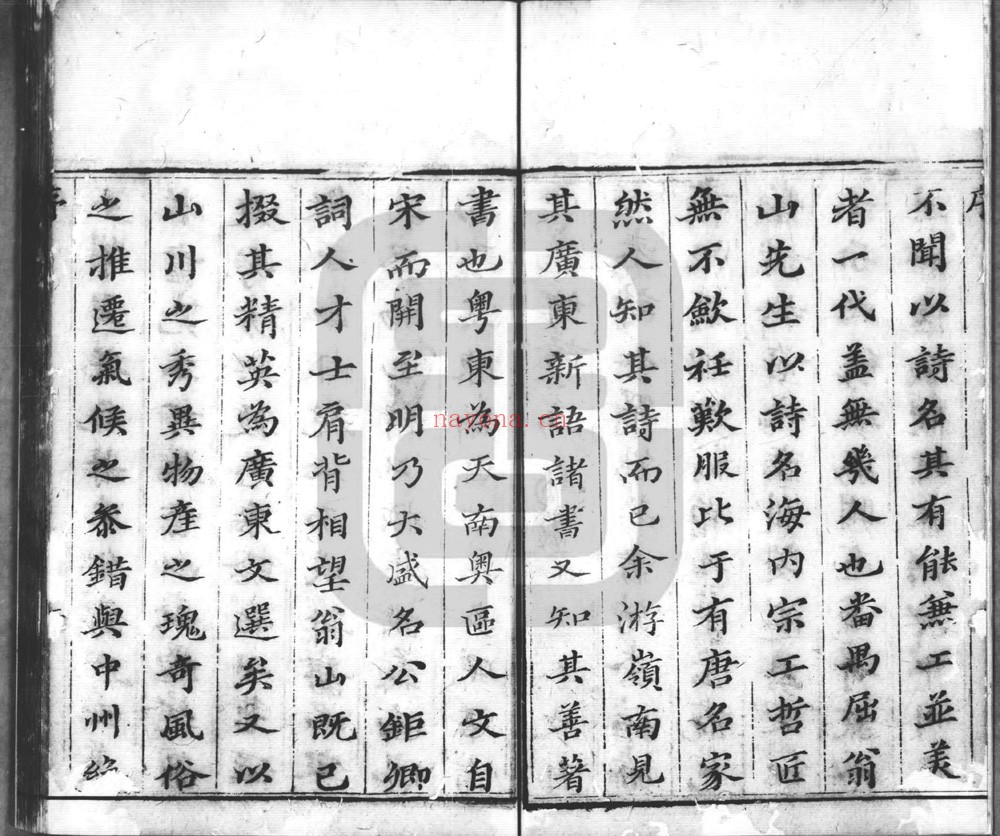 序
不聞以詩名其有能兼工並美
者一代盖無幾人也番禺屈翁
山先生以詩名海内宗工哲匠
無不歛衽歎服比于有唐名家
然人知其詩而已余游嶺南見
其廣東新語諸書又知其善著
書也粤東為天南奥區人文自
宋而開至明乃大盛名公鉅卿
詞人才士肩背相望翁山既已
掇其精英為廣東文選矣又以
山川之秀異物産之瑰奇風俗
之推遷氣候之叅錯與中州絶
序
nayona.cn